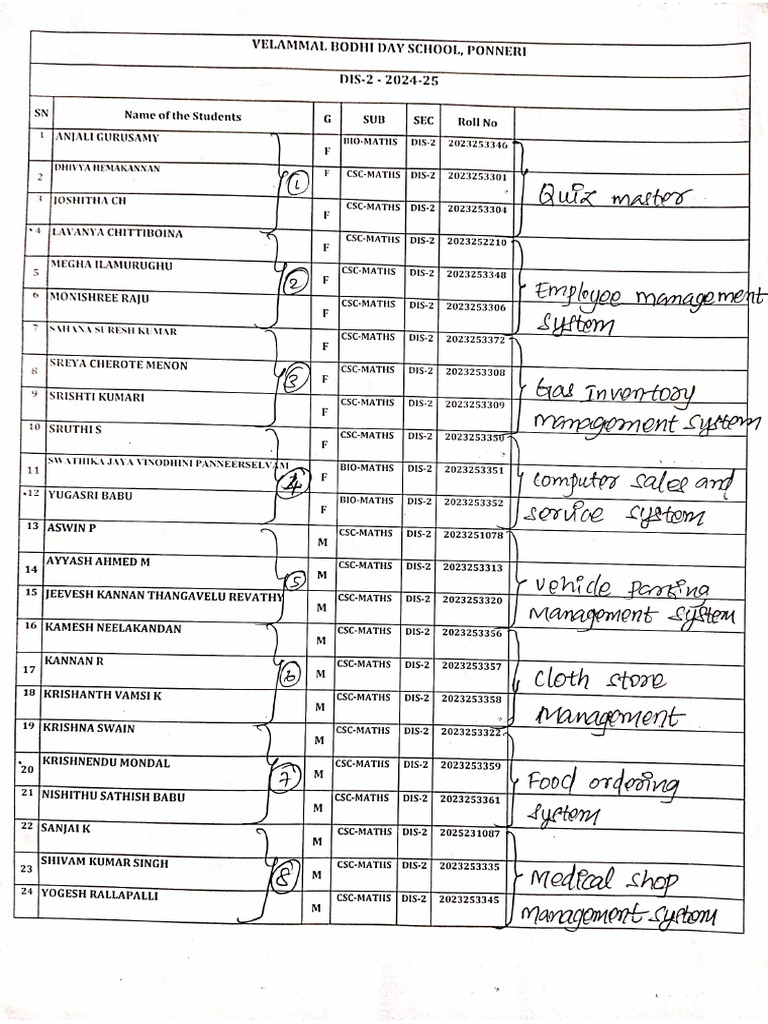 VELAMMAL BODHI DAY SCHOOL, PONNERI
DIS-2 - 2024-25
SN Name of the Students G SUB SEC Roll No
1 ANJALI GURUSAMY F BIO-MATHS DIS-2 2023253346
2 DHIVYA HEMAKANNAN F CSC-MATHS DIS-2 2023253301
3 JOSHITHA CH F CSC-MATHS DIS-2 2023253304
1 Quiz master
4 LAVANYA CHITTIBOINA F CSC-MATHS DIS-2 2023252210
5 MEGHA ILAMURUGHU F CSC-MATHS DIS-2 2023253348
6 MONISHREE RAJU F CSC-MATHS DIS-2 2023253306
2 Employee management
system
7 SAHANA SURESH KUMAR F CSC-MATHS DIS-2 2023253372
8 SREYA CHEROTE MENON F CSC-MATHS DIS-2 2023253308
9 SRISHTI KUMARI F CSC-MATHS DIS-2 2023253309
3 Gas Inventory
management system
10 SRUTHI S F CSC-MATHS DIS-2 2023253350
11 SWATHIKA JAYA VINODHINI PANNEERSELVAM F BIO-MATHS DIS-2 2023253351
12 YUGASRI BABU F BIO-MATHS DIS-2 2023253352
4 computer sales and
service system
13 ASWIN P M CSC-MATHS DIS-2 2023251078
14 AYYASH AHMED M M CSC-MATHS DIS-2 2023253313
15 JEEVESH KANNAN THANGAVELU REVATHY M CSC-MATHS DIS-2 2023253320
5 vehicle parking
Management system
16 KAMESH NEELAKANDAN M CSC-MATHS DIS-2 2023253356
17 KANNAN R M CSC-MATHS DIS-2 2023253357
18 KRISHANTH VAMSI K M CSC-MATHS DIS-2 2023253358
6 cloth store
Management
19 KRISHNA SWAIN M CSC-MATHS DIS-2 2023253322
20 KRISHNENDU MONDAL M CSC-MATHS DIS-2 2023253359
21 NISHITHU SATHISH BABU M CSC-MATHS DIS-2 2023253361
7 Food ordering
system
22 SANJAI K M CSC-MATHS DIS-2 2025231087
23 SHIVAM KUMAR SINGH M CSC-MATHS DIS-2 2023253335
24 YOGESH RALLAPALLI M CSC-MATHS DIS-2 2023253345
8 Medical shop
management system